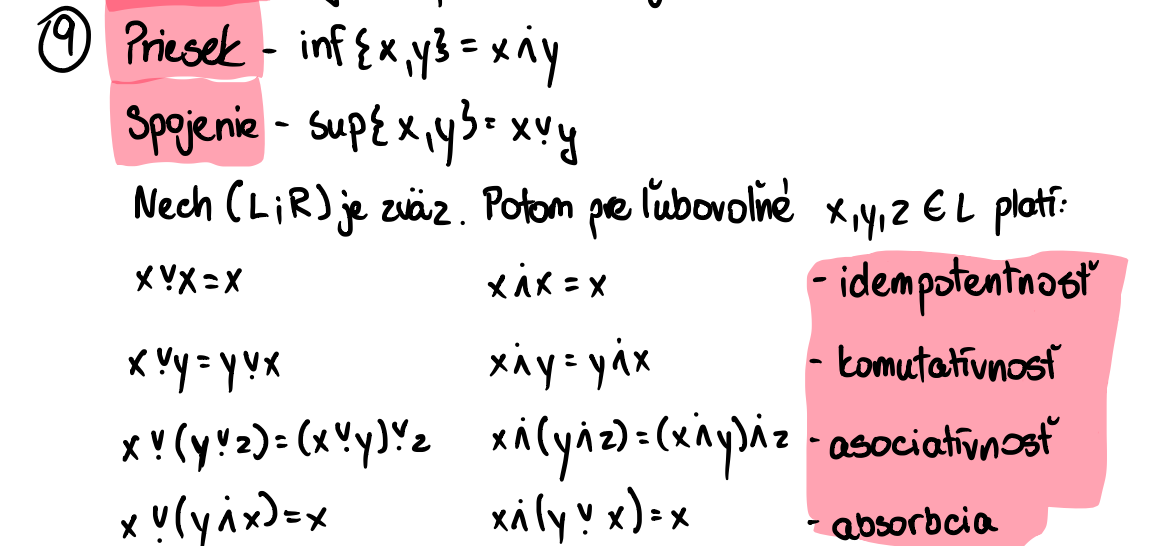 9 Priesek - inf{x,y} = x ⩑ y
Spojenie - sup{x,y} = x ⩒ y
Nech (L;R) je zväz. Potom pre ľubovoľné x,y,z ∈ L platí:
x ⩒ x = x x ⩑ x = x - idempotentnosť
x ⩒ y = y ⩒ x x ⩑ y = y ⩑ x - komutatívnosť
x ⩒ (y ⩒ z) = (x ⩒ y) ⩒ z x ⩑ (y ⩑ z) = (x ⩑ y) ⩑ z - asociatívnosť
x ⩒ (y ⩑ x) = x x ⩑ (y ⩒ x) = x - absorbcia